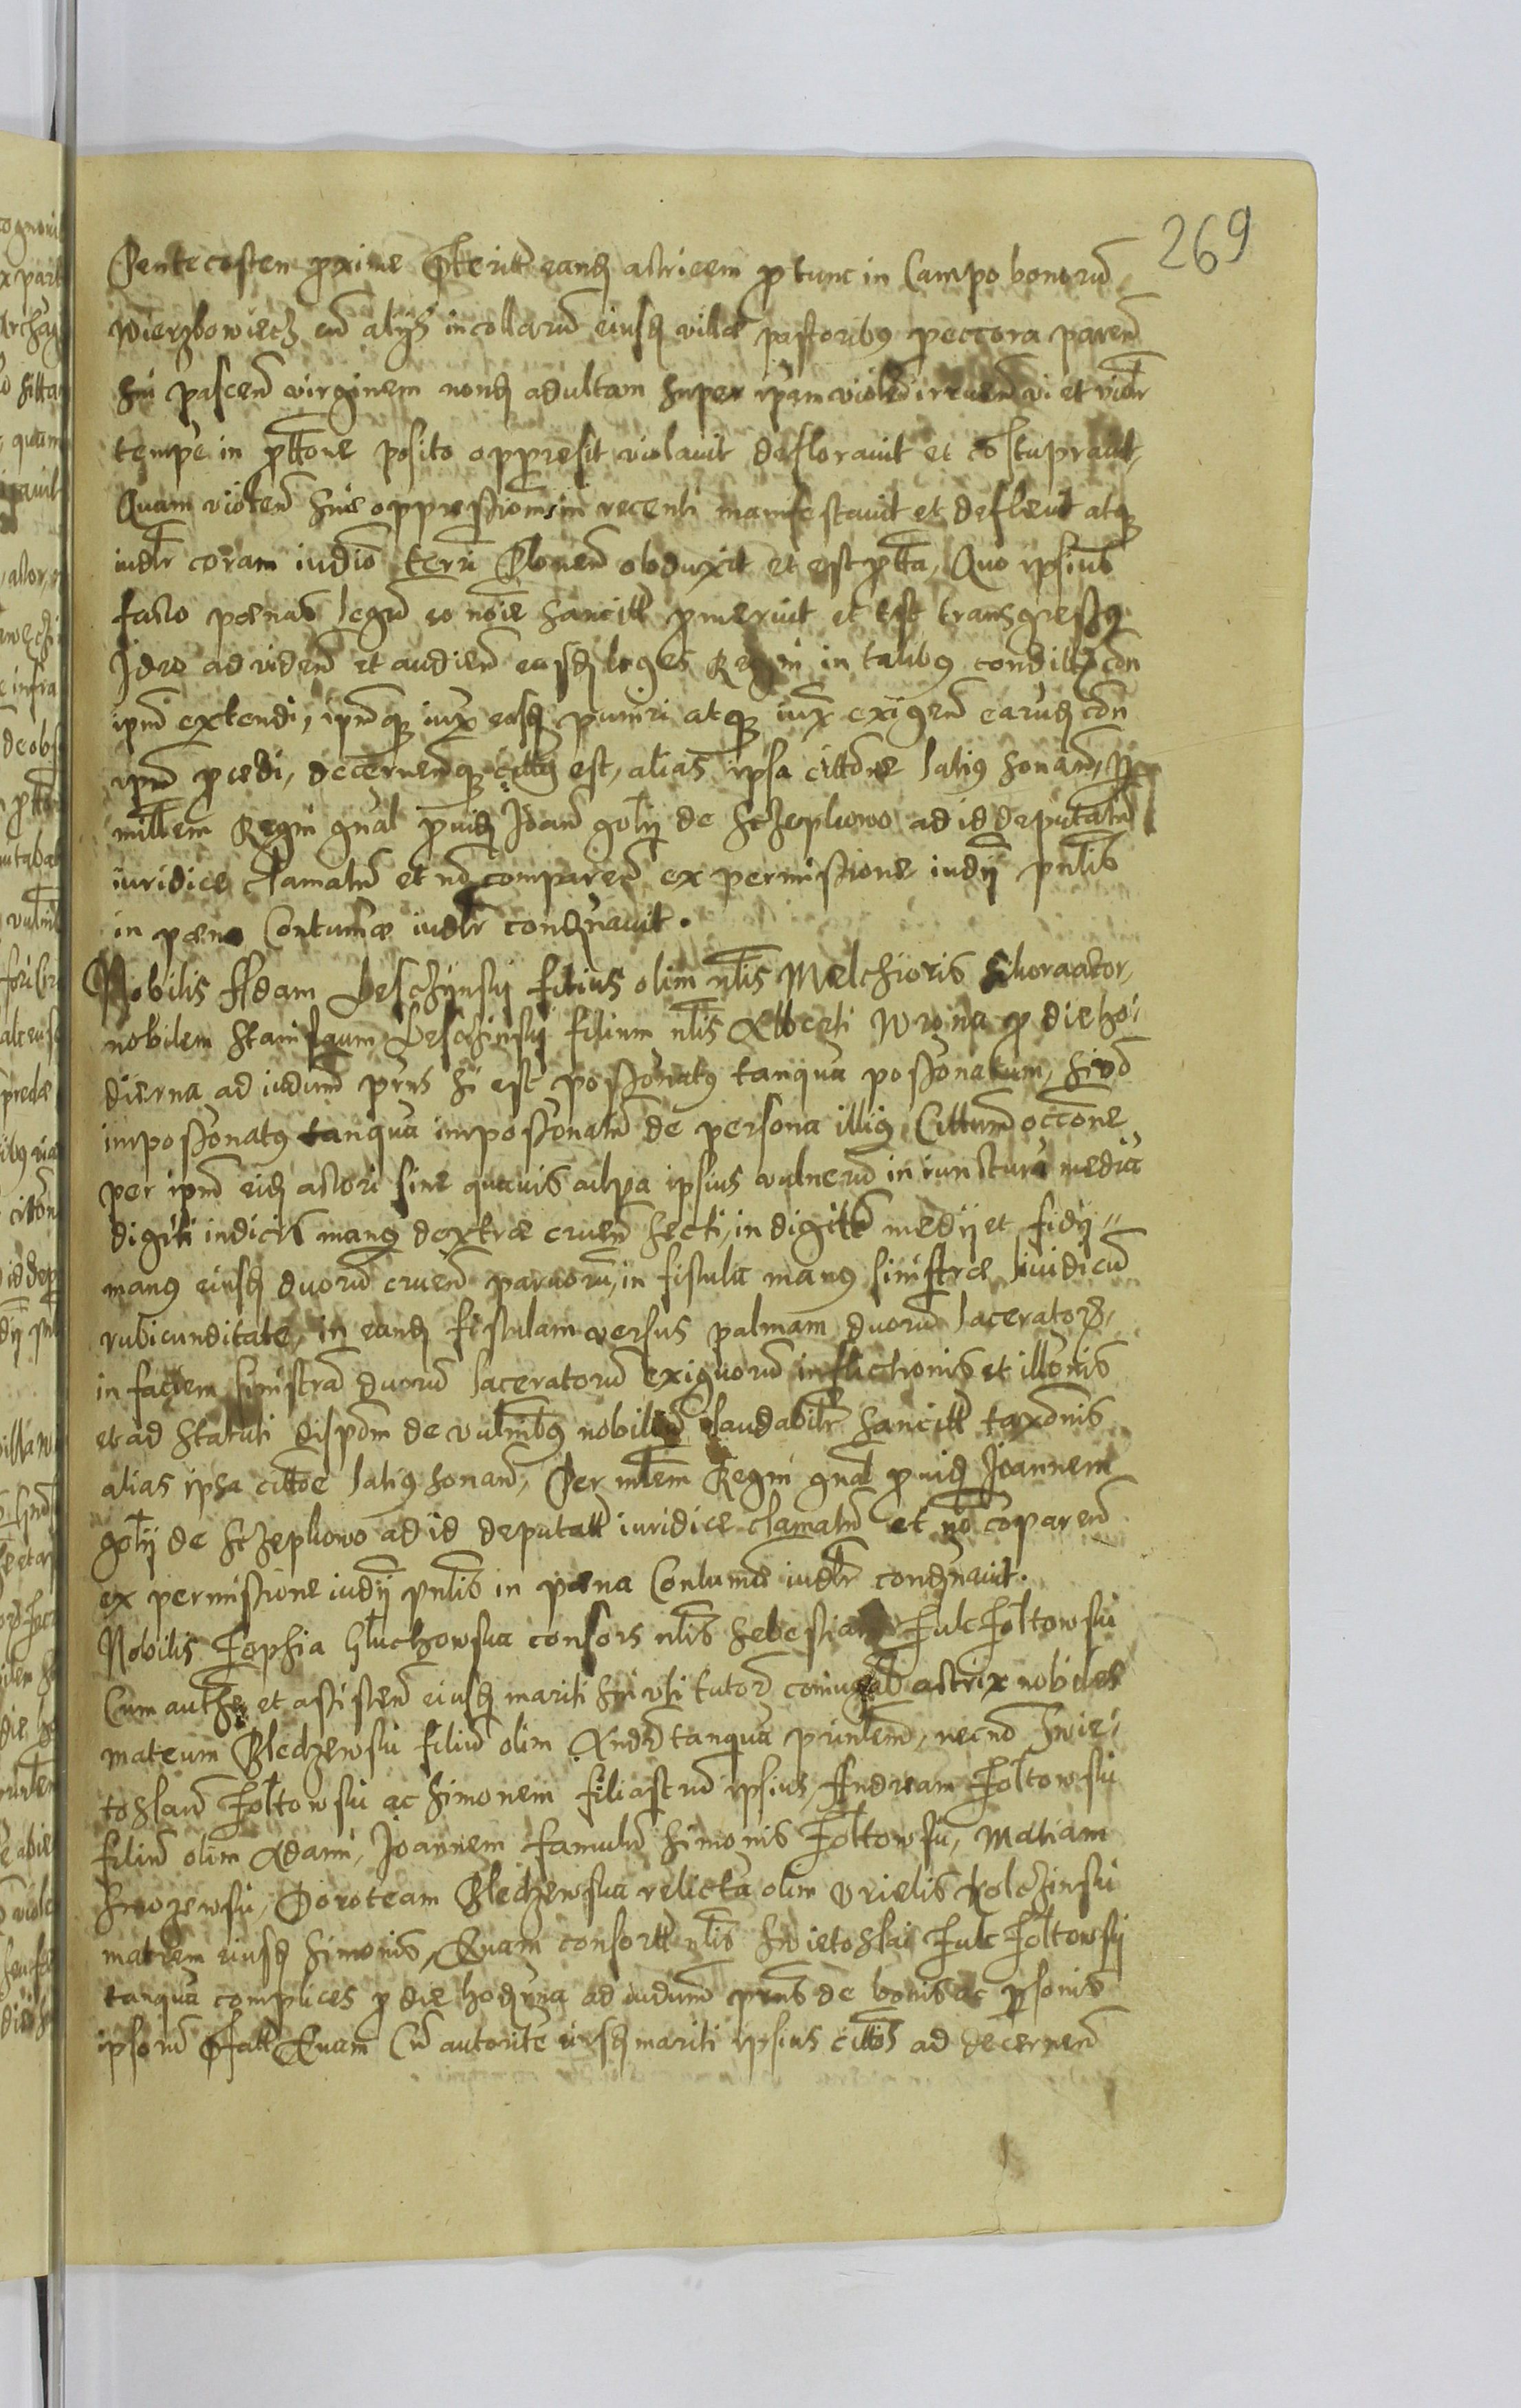 269
Pentecosten proxime praeteritt eandem actricem pro tunc in Campo bonorum
Wierzbowiecz cum alijs incollarum eiusdem villae pastoribus peccora parem
sui pascen virginem nondum adultam super ipsam violen irruen vi et violr
tempe in prottone posito oppressit violavit defloravit et constupravit,
Quam violen sue oppressionem in recenti manifestavit et deflevit atque
iudlr coram iudio terri Plonen obduxit et est protta, Quo ipsius
facto poenas legum eo noie sancitt promeruit et est transgressus
Ideo ad viden et audien easdem leges Regni in talibus conditt con
ipm extendi, ipmque iux easdem puniri atque iux exigen earundem con
ipm procedi, decernenque citty est, alias ipsa cittone latius sonan, Per
mittem Regni gnal providum Joan golij de Sczepkowo ad id deputatum
iuridice clamatum et non comparen ex permissione iudij pntis
in poena Contumae iudlr condemnavit.
Nobilis Adam Leschijnsky filius olim nlis Melchioris actor,
nobilem Stanislaum Leschinsky filium nlis Alberti Wrona pro die ho-
dierna ad iudium prns si est possionatus tanquam possionatum, si vero
impossionatus tanquam impossionatum de persona illius Cittum occone
per ipm eidem actori sine quavis culpa ipsius vulnerum in iunctura media
digiti indicis manus dextrae cruen secti, in digitt medij et fidij
manus eiusdem duorum cruen parvorum, in fistula manus sinistrae lividi cum
rubicunditate, in eandem fistulam versus palmam duorum laceratorum,
in faciem sinistram duorum laceratorum exiguorum inflictionis et illonis
et ad Statuti dispom de vulnibus nobilium laudabilr sancitt taxonis
alias ipsa cittoe latius sonan, Per mtem Regni gnal providum Joannem
golij de Sczepkowo ad id deputatt iuridice clamatum et non coparen
ex permissione iudij pntis in poena Contumae iudlr condemnavit.
Nobilis Zophia Gluchowska consors nlis Sebestiani Fulc Zoltowsky
Cum authe et assisten eiusdem mariti sui uti tutoris coniugal actrix nobiles
mateum Bledzewsky filium olim Andr tanquam prinlem, necnon Swie-
toslaum Zoltowsky ac Simonem filiastrum ipsius, Andream Zoltowsky
filium olim Adami, Joannem famulum Simonis Zoltowsky, Matiam
Smozewsky, Doroteam Bledzewska relictam olim Urielis Kolczinsky
matrem eiusdem Simonis, Evam consortt nlis Swietoslai Fulc Zoltowsky
tanquam complices pro die hodierna ad iudium prns de bonis ac personis
ipsorum Praefatt Evam Cum autorite eiusdem mariti ipsius cittos ad decernen